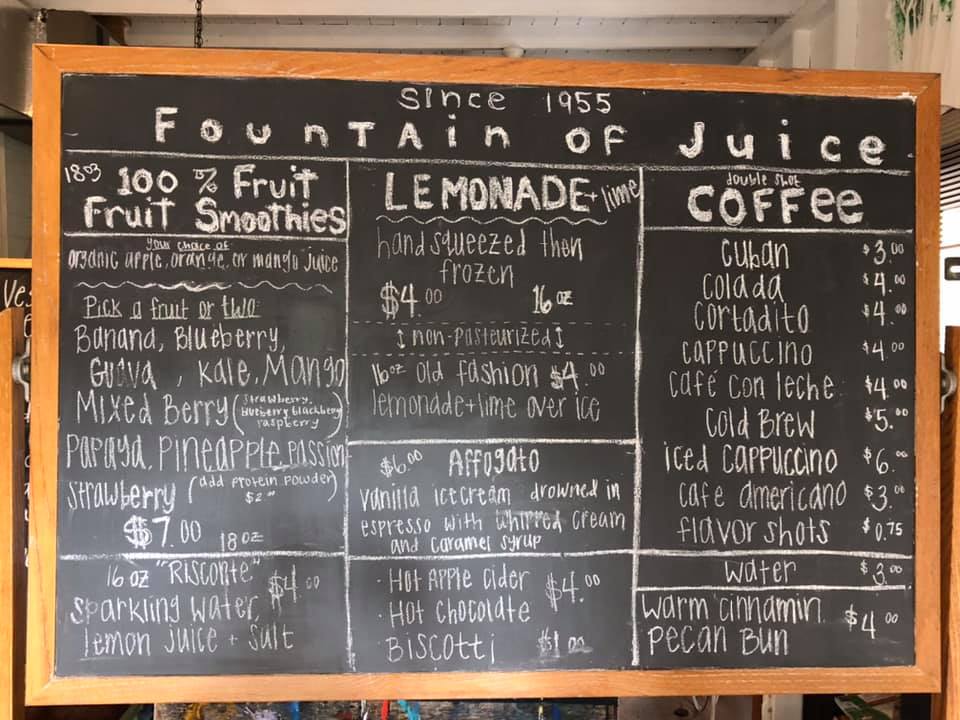 Since 1955
Fountain of Juice
100 % Fruit
Fruit Smoothies
your choice of
organic apple, orange, or mango juice
Pick a fruit or two
Banana, Blueberry,
Guava, Kale, Mango
Mixed Berry (strawberry, blueberry, blackberry, raspberry)
Papaya, Pineapple, passion
strawberry (add protein powder) $2
$7.00 18 oz
16 oz "Risconte" $4.00
sparkling water,
lemon juice + salt
LEMONADE + lime
hand squeezed then
frozen
$4.00 16 oz
↕ non-pasteurized ↕
16 oz old fashion $4.00
lemonade + lime over ice
$6.00 Affogato
vanilla ice cream drowned in
espresso with whipped cream
and caramel syrup
· Hot Apple Cider $4.00
· Hot chocolate
Biscotti $1.00
double shot
COFFee
cuban $3.00
colada $4.00
cortadito $4.00
cappuccino $4.00
café con leche $4.00
cold Brew $5.00
iced cappuccino $6.00
cafe americano $3.00
flavor shots $0.75
water $3.00
warm cinnamin $4.00
pecan Bun